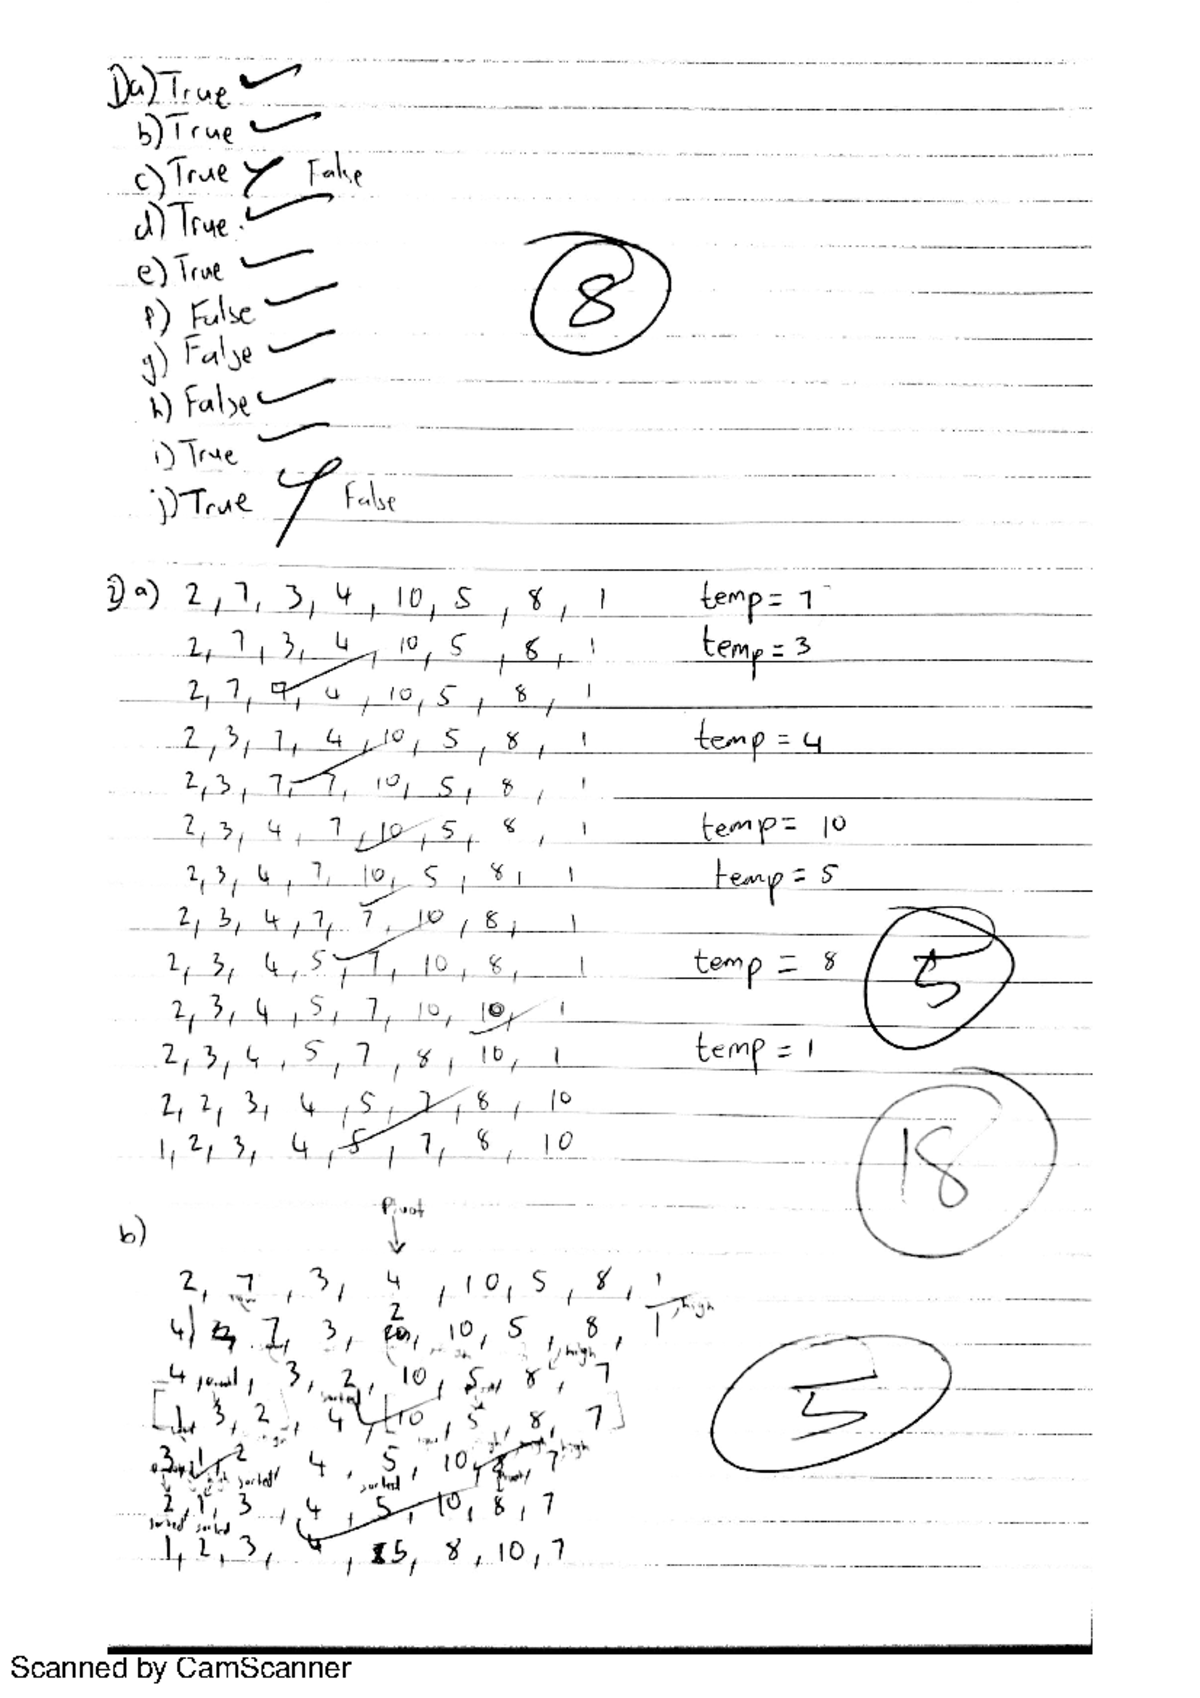 1) a) True
b) True
c) True False
d) True.
e) True
f) False
g) False
h) False
i) True
j) True False
8
2) a) 2, 7, 3, 4, 10, 5, 8, 1 temp = 7
2, 7, 3, 4, 10, 5, 8, 1 temp = 3
2, 7, 7, 4, 10, 5, 8, 1
2, 3, 7, 4, 10, 5, 8, 1 temp = 4
2, 3, 7, 7, 10, 5, 8, 1
2, 3, 4, 7, 10, 5, 8, 1 temp = 10
2, 3, 4, 7, 10, 5, 8, 1 temp = 5
2, 3, 4, 7, 7, 10, 8, 1
2, 3, 4, 5, 7, 10, 8, 1 temp = 8
5
2, 3, 4, 5, 7, 10, 10, 1
2, 3, 4, 5, 7, 8, 10, 1 temp = 1
2, 2, 3, 4, 5, 7, 8, 10
1, 2, 3, 4, 5, 7, 8, 10
18
b)
Pivot
2, 7, 3, 4, 10, 5, 8, 1
high
4, 7, 3, 2, 10, 5, 8, 1
high
4, 3, 2, 10, 5, 8, 7
sorted
[1, 3, 2], 4, [10, 5, 8, 7]
5
high
3, 1, 2 4, 5, 10, 7
sorted sorted
2, 1, 3, 4, 5, 10, 8, 7
sorted sorted
1, 2, 3, 4, 5, 8, 10, 7
Scanned by CamScanner